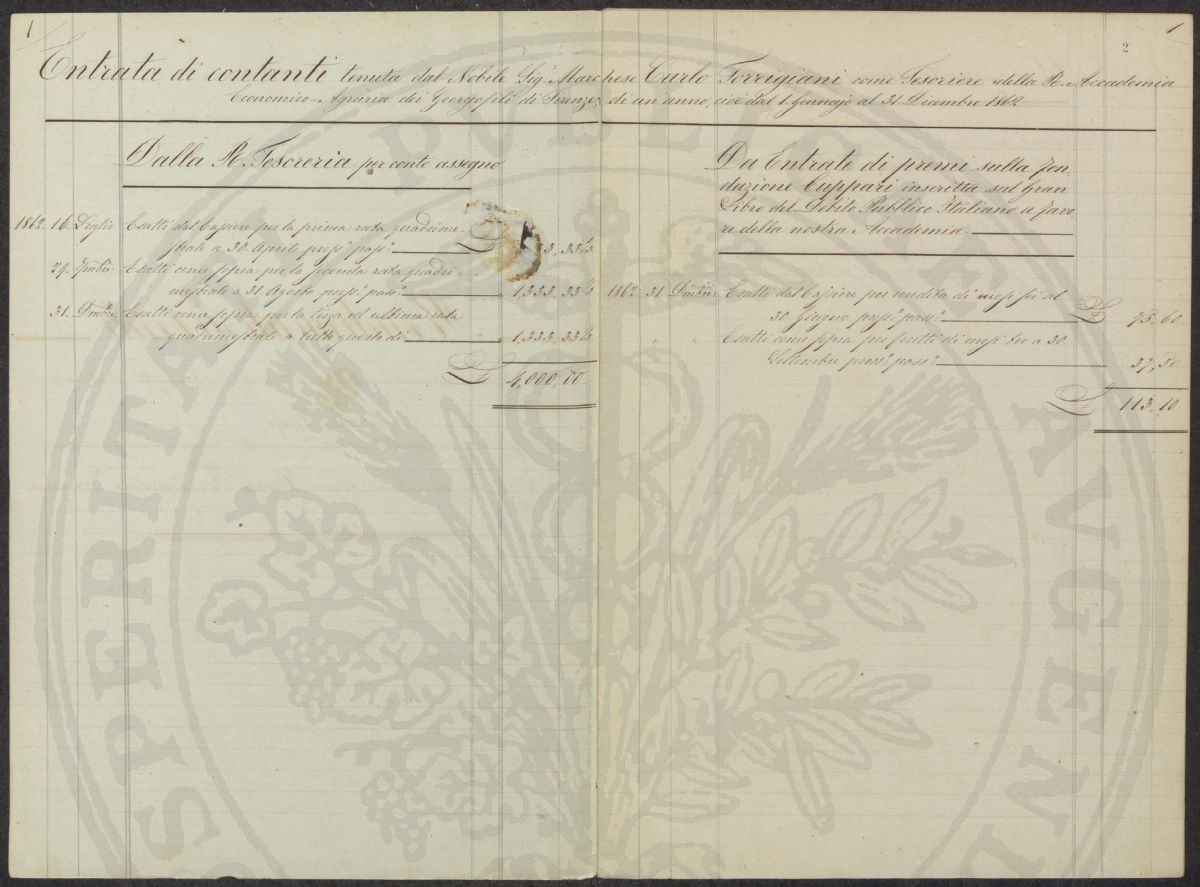 1
1
2
Entrata di contanti tenuta dal Nobile Sig.r Marchese Carlo Torrigiani come Tesoriere della R. Accademia
Economico-Agraria dei Georgofili di Firenze, di un anno, cioè dal 1. Gennajo al 31. Dicembre 1862.
Dalla R. Tesoreria per conto assegno
1862. 16. Luglio Esatti dal Cassiere per la prima rata quadrime-
strale a 30. Aprile pross.o pass.o £ 33, 33⅓
29. 9mbre. Esatti come sopra per la seconda rata quadri-
mestrale a 31. Agosto pross.o pass.o " 1,333, 33⅓
31. Dmbre. Esatti come sopra per la terza ed ultima rata
quadrimestrale a tutto questo dì " 1,333, 33⅓
£ 4,000, 00.
Da Entrate di premi sulla Fon
dazione Cuppari inscritta sul Gran
Libro del Debito Pubblico Italiano a favo
re della nostra Accademia.
1862 31. Dmbre. Esatti dal Cassiere per rendita di mesi sei al
30. Giugno pross.o pass.o £ 75. 60
" " Esatti come sopra per frutti di mesi tre a 30.
Settembre pross.o pass.o " 37, 50
£ 113. 10
PROSPERITATI PUBLICAE AVGENDAE